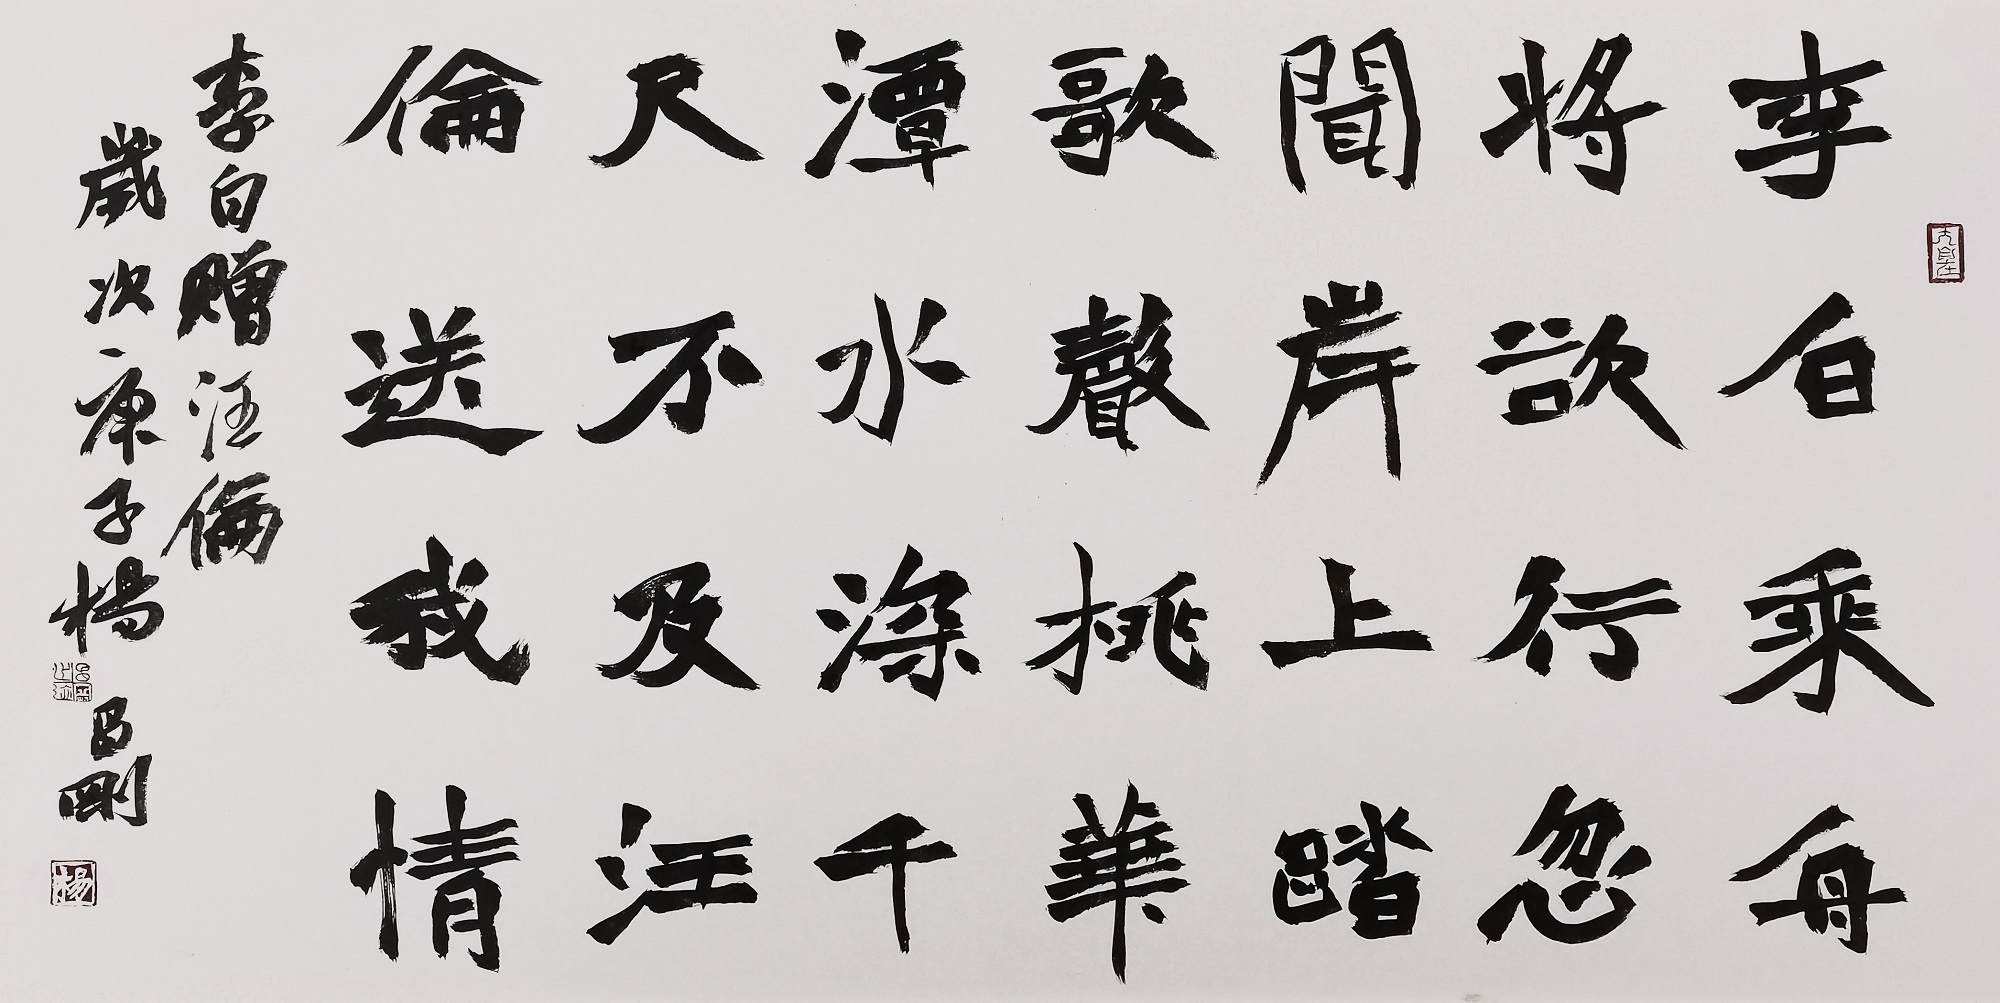 李白乘舟
將欲行忽
聞岸上踏
歌聲桃華
潭水深千
尺不及汪
倫送我情
李白赠汪倫
歲次庚子楊昌剛
大自在
楊